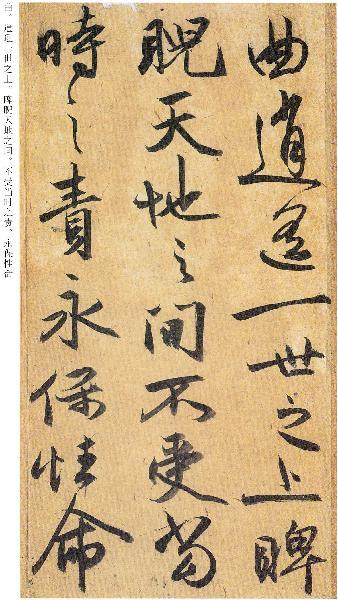 曲逍遥一世之上睥
睨天地之间不受当
时之责永保性命
曲。逍遥一世之上。睥睨天地之间。不受当时之责。永保性命